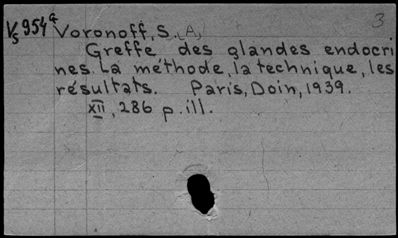 3
V5 954a Voronoff, S. (A)
Greffe des glandes endocri
nes. La méthode, la technique, les
résultats. Paris, Doin, 1939.
XII, 286 p. ill.